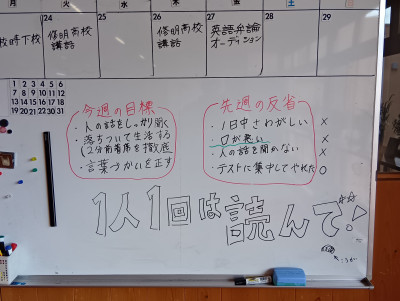 月 火 水 木 金 土 日
24 25 26 27 28 29 30
校時下校
修明高校
講話
修明高校
講話
英語弁論
オーディション
1 2 3 4 5
6 7 8 9 10 11 12
13 14 15 16 17 18 19
20 21 22 23 24 25 26
27 28 29 30 31
今週の目標
・人の話をしっかり聞く
・落ちついて生活する
(2分前着席を徹底
・言葉づかいを正す
先週の反省
・1日中さわがしい ×
・口が悪い ×
・人の話を聞かない ×
・テストに集中してやれた ○
1人1回は読んで!